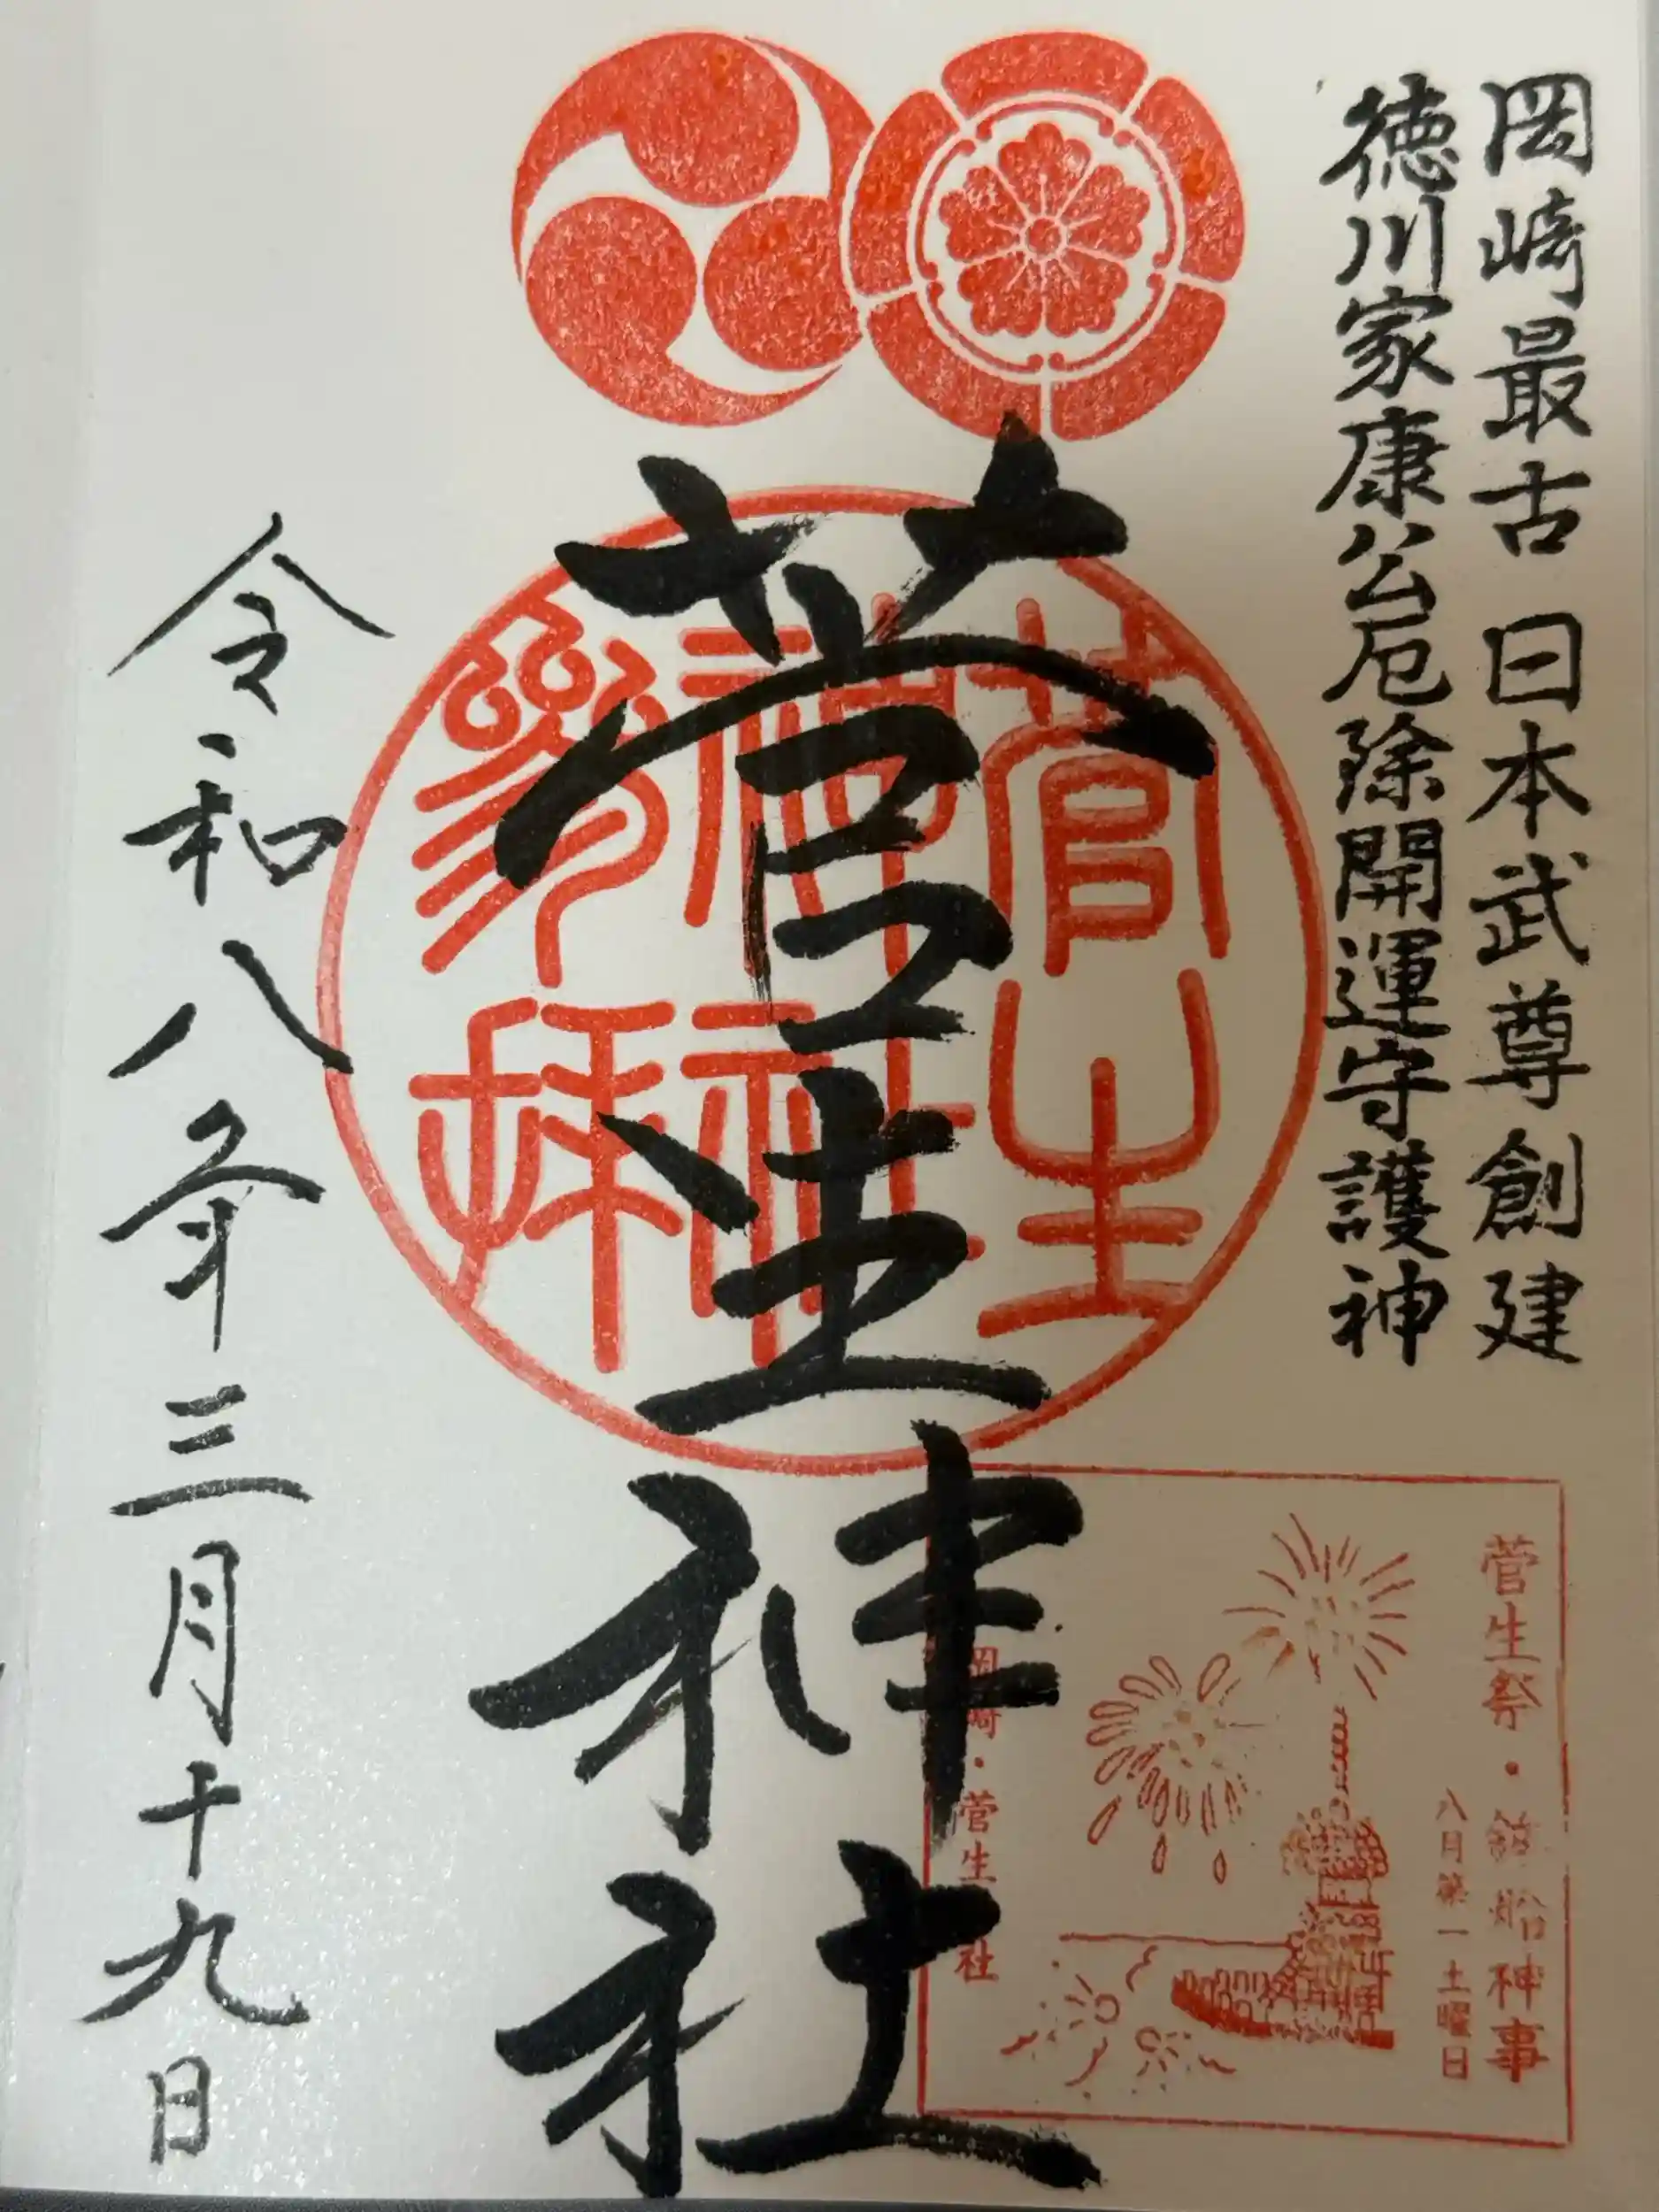 岡崎最古 日本武尊創建
徳川家康公厄除開運守護神
菅生神社
菅生
神社
参拝
菅生祭・鉾船神事
八月第一土曜日
岡崎・菅生 社
令和八年三月十九日